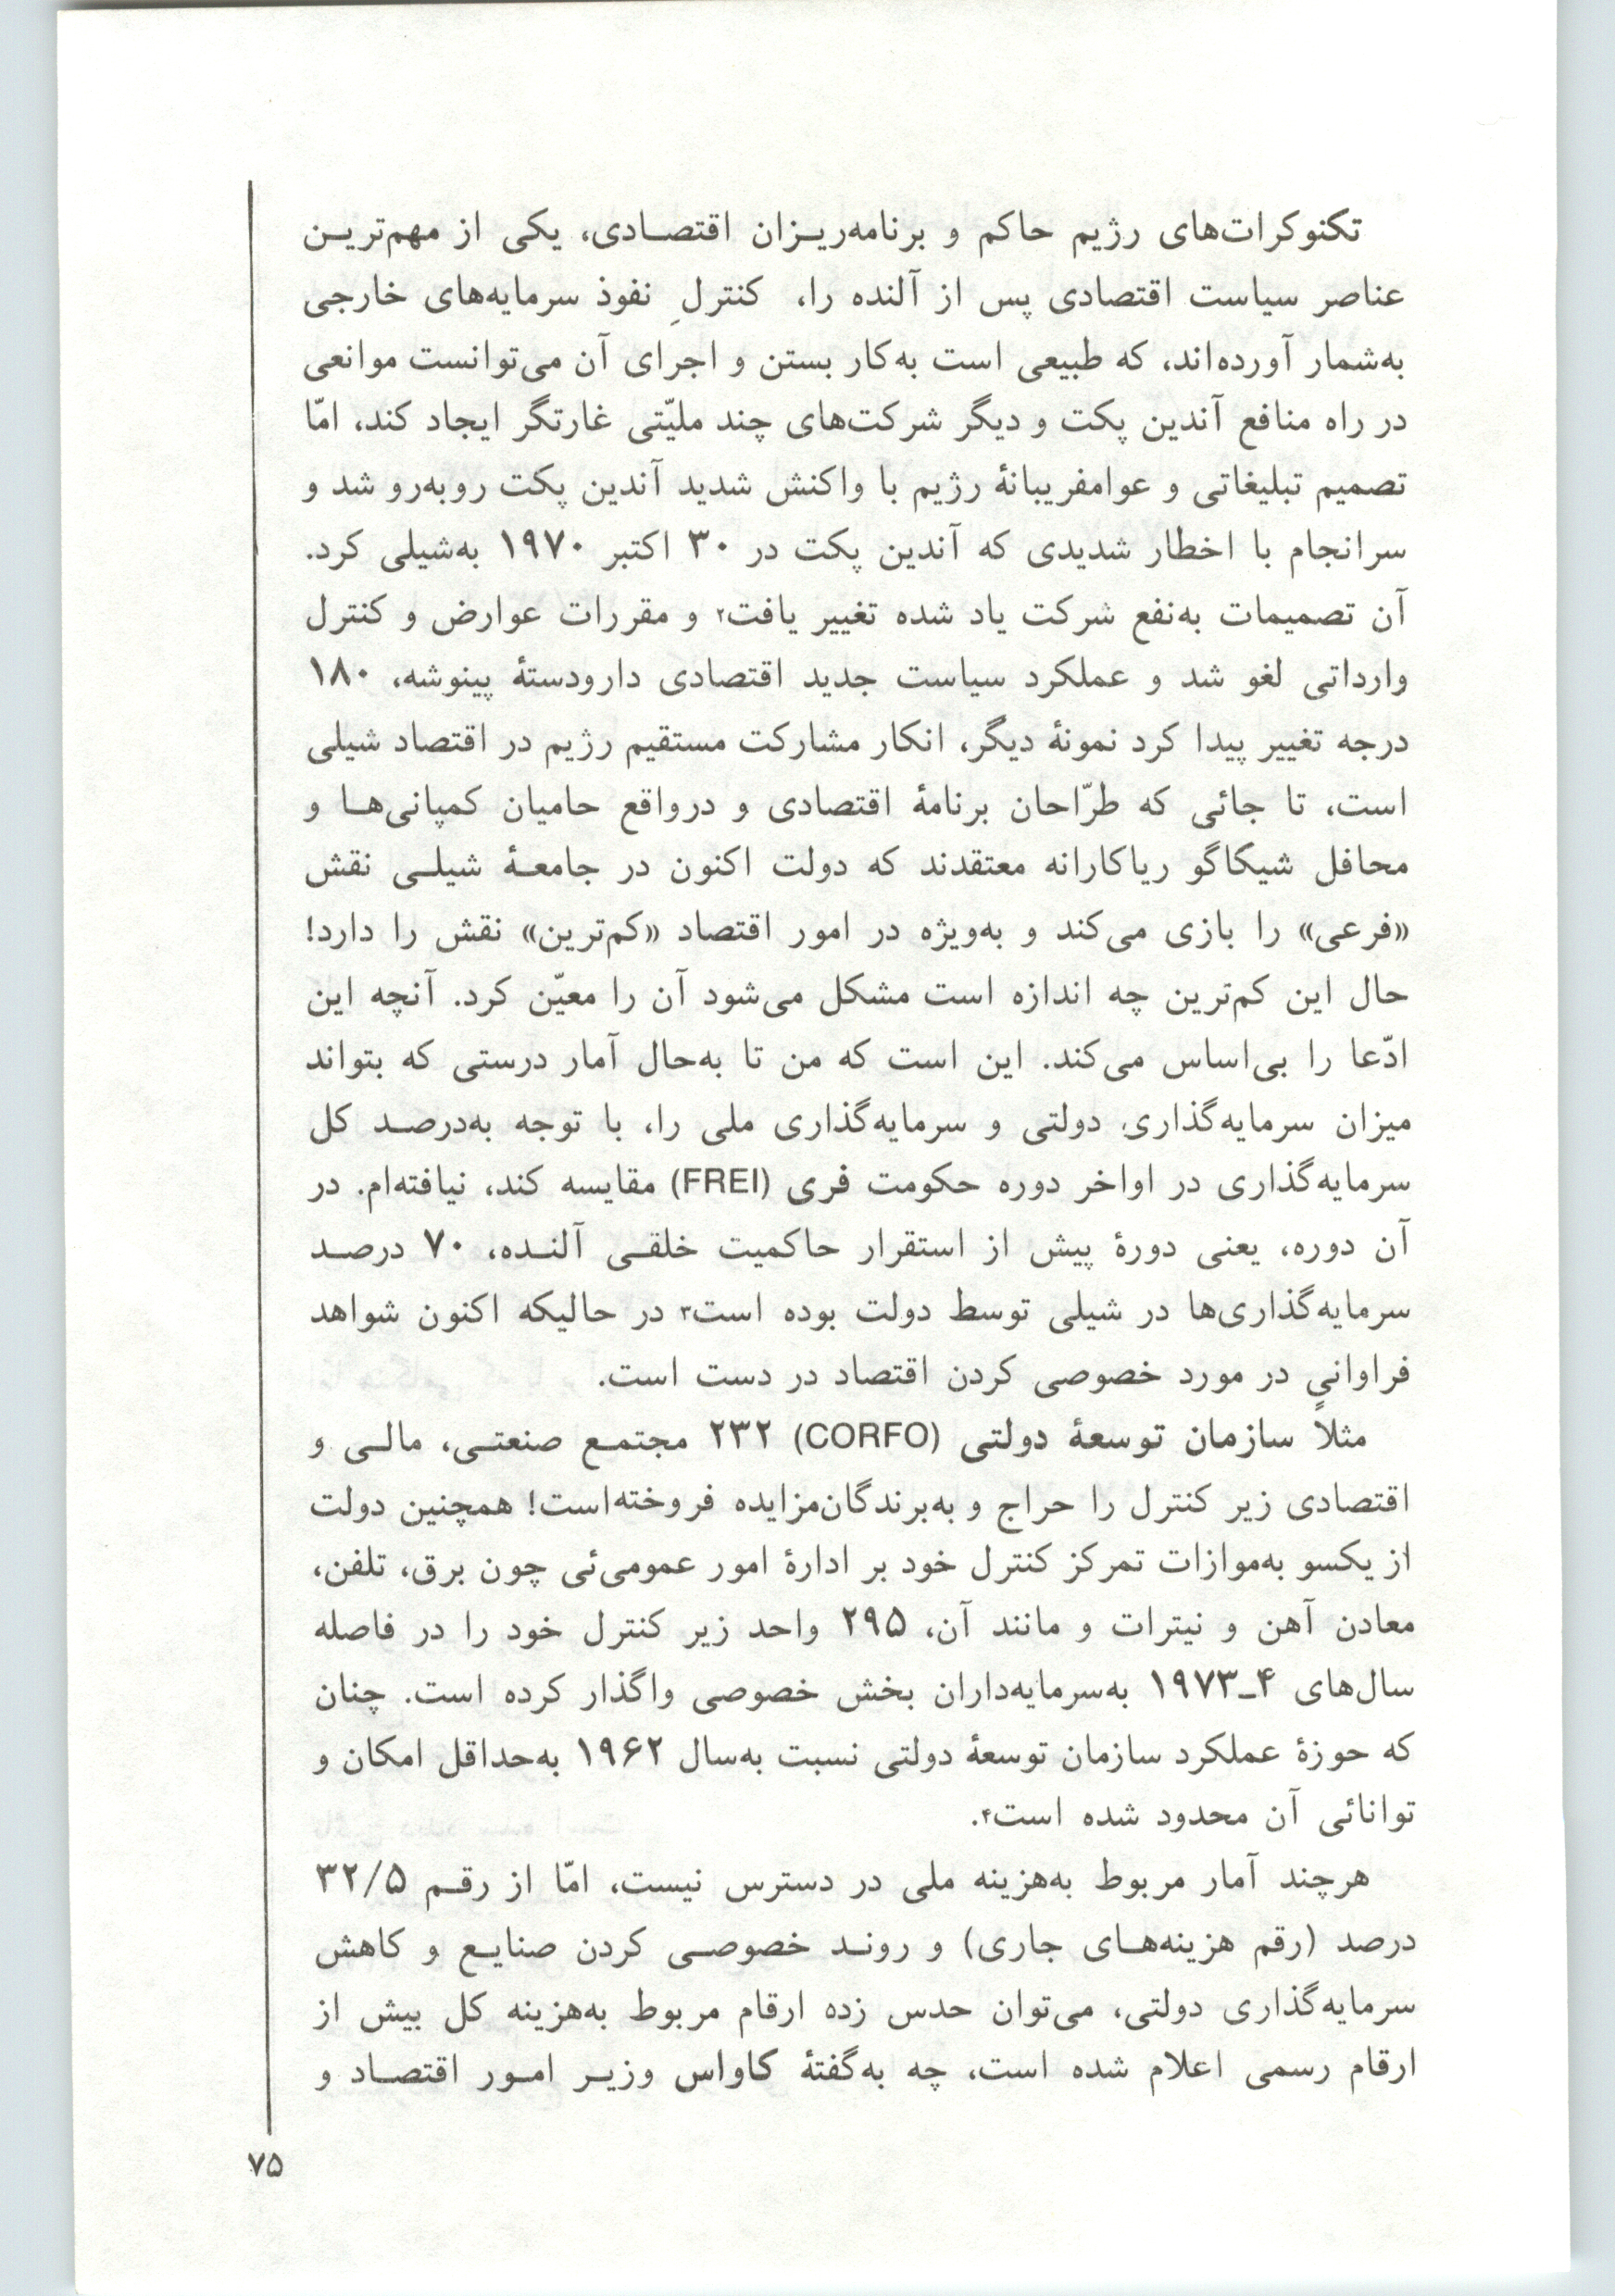 تکنوکرات‌های رژیم حاکم و برنامه‌ریـزان اقتصـادی، یکی از مهم‌تریـن
عناصر سیاست اقتصادی پس از آلنده را، کنترلِ نفوذ سرمایه‌های خارجی
به‌شمار آورده‌اند، که طبیعی است به‌کار بستن و اجرای آن می‌توانست موانعی
در راه منافع آندین پکت و دیگر شرکت‌های چند ملیّتی غارتگر ایجاد کند، امّا
تصمیم تبلیغاتی و عوامفریبانهٔ رژیم با واکنش شدید آندین پکت روبه‌رو شد و
سرانجام با اخطار شدیدی که آندین پکت در ۳۰ اکتبر ۱۹۷۰ به‌شیلی کرد.
آن تصمیمات به‌نفع شرکت یاد شده تغییر یافت۲ و مقررات عوارض و کنترل
وارداتی لغو شد و عملکرد سیاست جدید اقتصادی دارودستهٔ پینوشه، ۱۸۰
درجه تغییر پیدا کرد نمونهٔ دیگر، انکار مشارکت مستقیم رژیم در اقتصاد شیلی
است، تا جائی که طرّاحان برنامهٔ اقتصادی و درواقع حامیان کمپانی‌هـا و
محافل شیکاگو ریاکارانه معتقدند که دولت اکنون در جامعـهٔ شیلـی نقش
«فرعی» را بازی می‌کند و به‌ویژه در امور اقتصاد «کم‌ترین» نقش را دارد!
حال این کم‌ترین چه اندازه است مشکل می‌شود آن را معیّن کرد. آنچه این
ادّعا را بی‌اساس می‌کند. این است که من تا به‌حال آمار درستی که بتواند
میزان سرمایه‌گذاری دولتی و سرمایه‌گذاری ملی را، با توجه به‌درصـد کل
سرمایه‌گذاری در اواخر دوره حکومت فری (FREI) مقایسه کند، نیافته‌ام. در
آن دوره، یعنی دورهٔ پیش از استقرار حاکمیت خلقـی آلنـده، ۷۰ درصـد
سرمایه‌گذاری‌ها در شیلی توسط دولت بوده است۳ در حالیکه اکنون شواهد
فراوانیٍ در مورد خصوصی کردن اقتصاد در دست است.
مثلاً سازمان توسعهٔ دولتی (CORFO) ۲۳۲ مجتمـع صنعتـی، مالـی و
اقتصادی زیر کنترل را حراج و به‌برندگان‌مزایده فروخته‌است! همچنین دولت
از یکسو به‌موازات تمرکز کنترل خود بر ادارهٔ امور عمومی‌ئی چون برق، تلفن،
معادن آهن و نیترات و مانند آن، ۲۹۵ واحد زیر کنترل خود را در فاصله
سال‌های ۴ــ۱۹۷۳ به‌سرمایه‌داران بخش خصوصی واگذار کرده است. چنان
که حوزهٔ عملکرد سازمان توسعهٔ دولتی نسبت به‌سال ۱۹۶۲ به‌حداقل امکان و
توانائی آن محدود شده است۴.
هرچند آمار مربوط به‌هزینه ملی در دسترس نیست، امّا از رقـم ۳۲/۵
درصد (رقم هزینه‌هـای جاری) و رونـد خصوصـی کردن صنایـع و کاهش
سرمایه‌گذاری دولتی، می‌توان حدس زده ارقام مربوط به‌هزینه کل بیش از
ارقام رسمی اعلام شده است، چه به‌گفتهٔ کاواس وزیـر امـور اقتصـاد و
۷۵